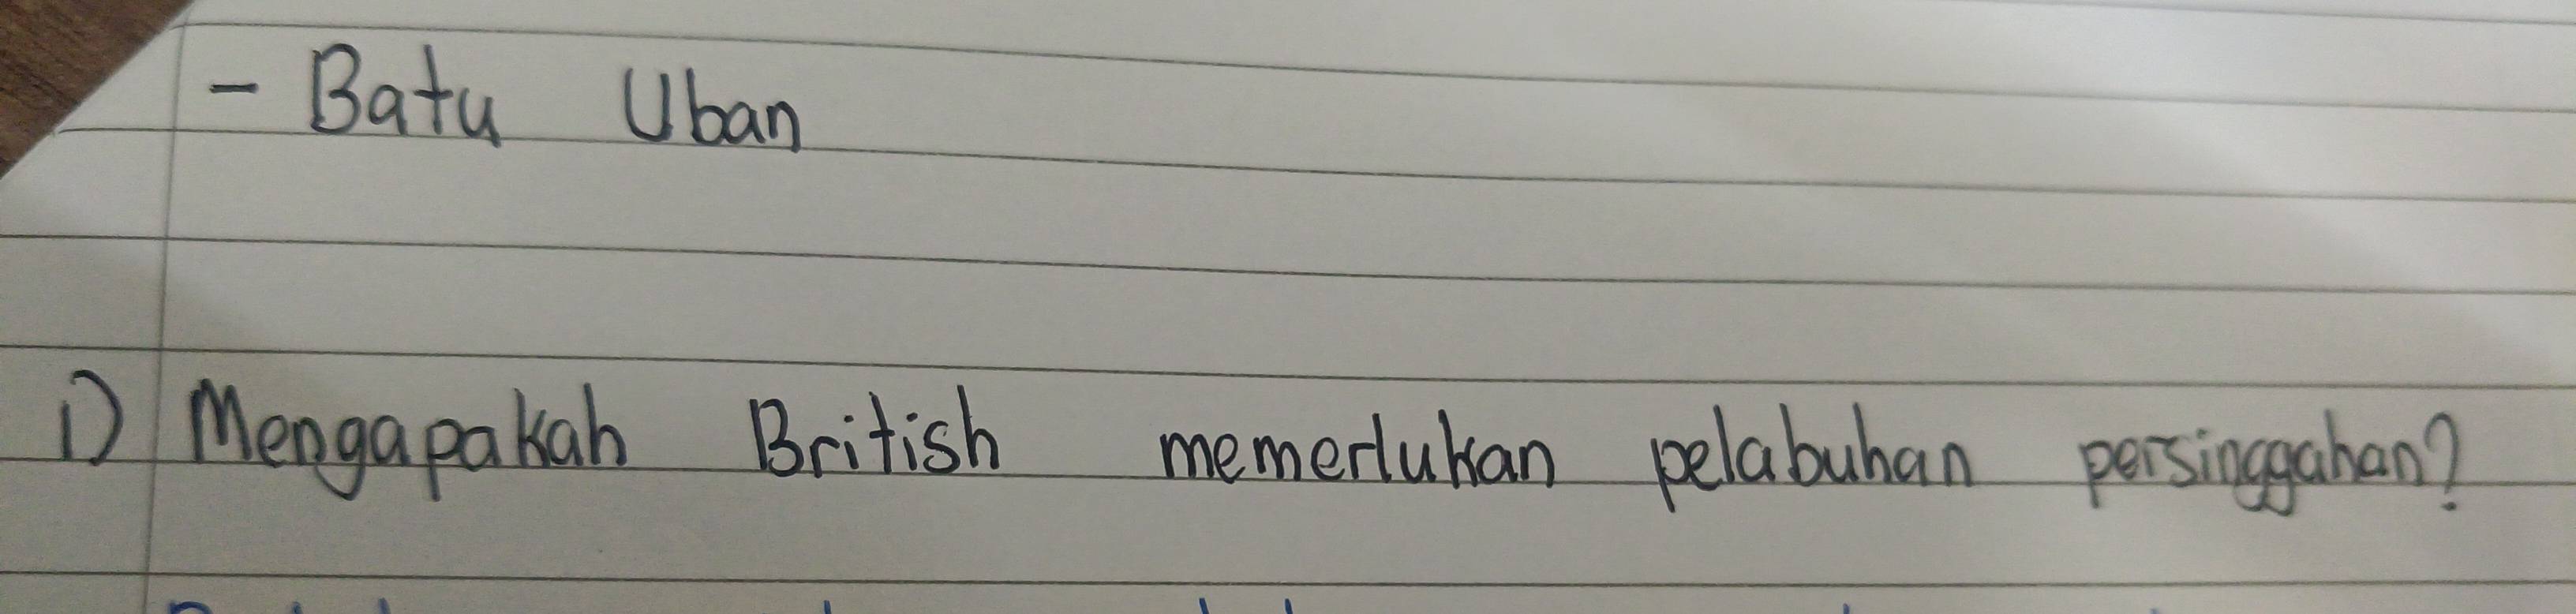 - Batu Uban
1) Mengapakah British memerlukan pelabuhan persinggahan?